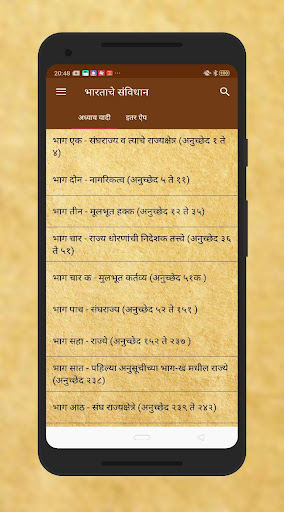 20:48
भारताचे संविधान
अध्याय यादी इतर ऐप
भाग एक - संघराज्य व त्याचे राज्यक्षेत्र (अनुच्छेद १ ते
४)
भाग दोन - नागरिकत्व (अनुच्छेद ५ ते ११)
भाग तीन - मूलभूत हक्क (अनुच्छेद १२ ते ३५)
भाग चार - राज्य धोरणांची निदेशक तत्त्वे (अनुच्छेद ३६
ते ५१)
भाग चार क - मूलभूत कर्तव्य (अनुच्छेद ५१क )
भाग पाच - संघराज्य (अनुच्छेद ५२ ते १५१ )
भाग सहा - राज्ये (अनुच्छेद १५२ ते २३७ )
भाग सात - पहिल्या अनुसूचीच्या भाग-ख मधील राज्ये
(अनुच्छेद २३८)
भाग आठ - संघ राज्यक्षेत्रे (अनुच्छेद २३९ ते २४२)